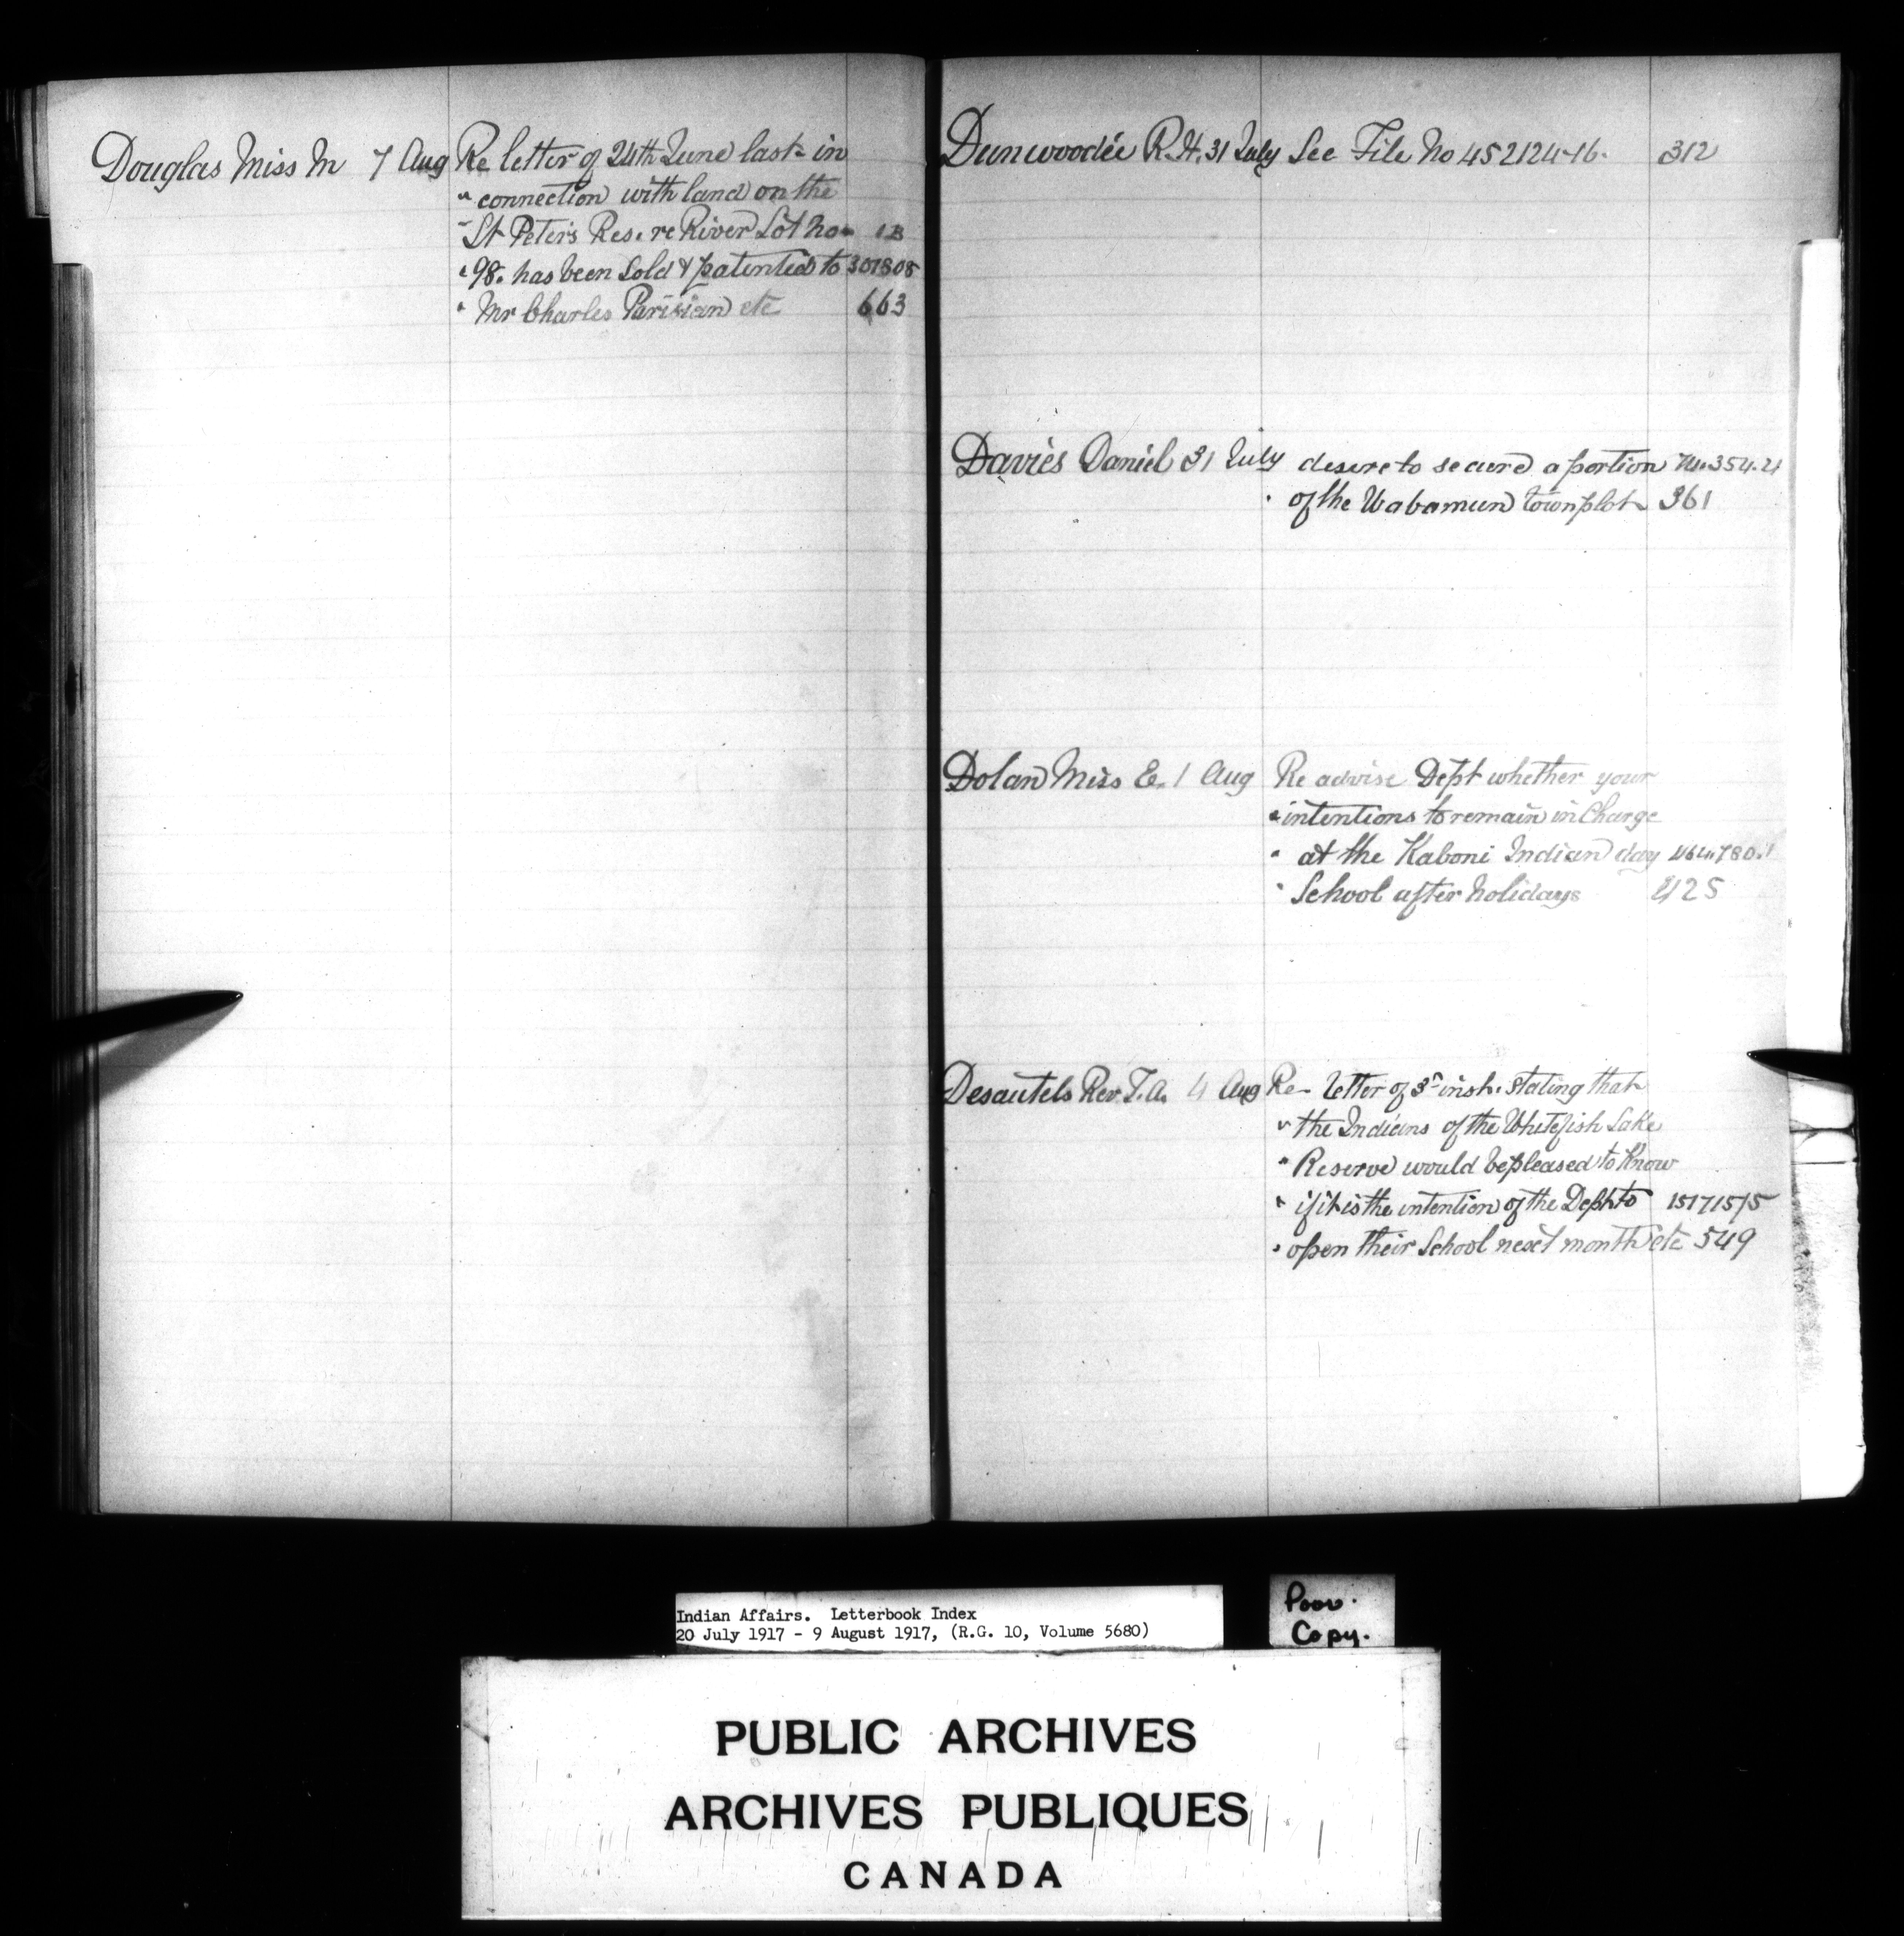 Douglas Miss M 7 Aug Re letter of 24th June last in
" connection with land on the
" St Peter's Reserve River Lot No 1B
" 98. has been Sold & patented to 307808
" Mr Charles Parisian etc 663
Dunwoodie R.H. 31 July See File No 452124-16. 312
Davies Daniel 31 July desire to secure a portion 74.354.21
" of the Wabamun townplot 361
Dolan Miss E. 1 Aug Re advise Dept whether your
" intentions to remain in Charge
" at the Kaboni Indian day 464.780.1
" School after holidays 425
Desautels Rev. T.A. 4 Aug Re letter of 3rd inst. stating that
" the Indians of the Whitefish Lake
" Reserve would be pleased to Know
" if it is the intention of the Dept to
" open their School next month etc 549
Indian Affairs. Letterbook Index
20 July 1917 - 9 August 1917, (R.G. 10, Volume 5680)
Poor.
Copy.
PUBLIC ARCHIVES
ARCHIVES PUBLIQUES
CANADA